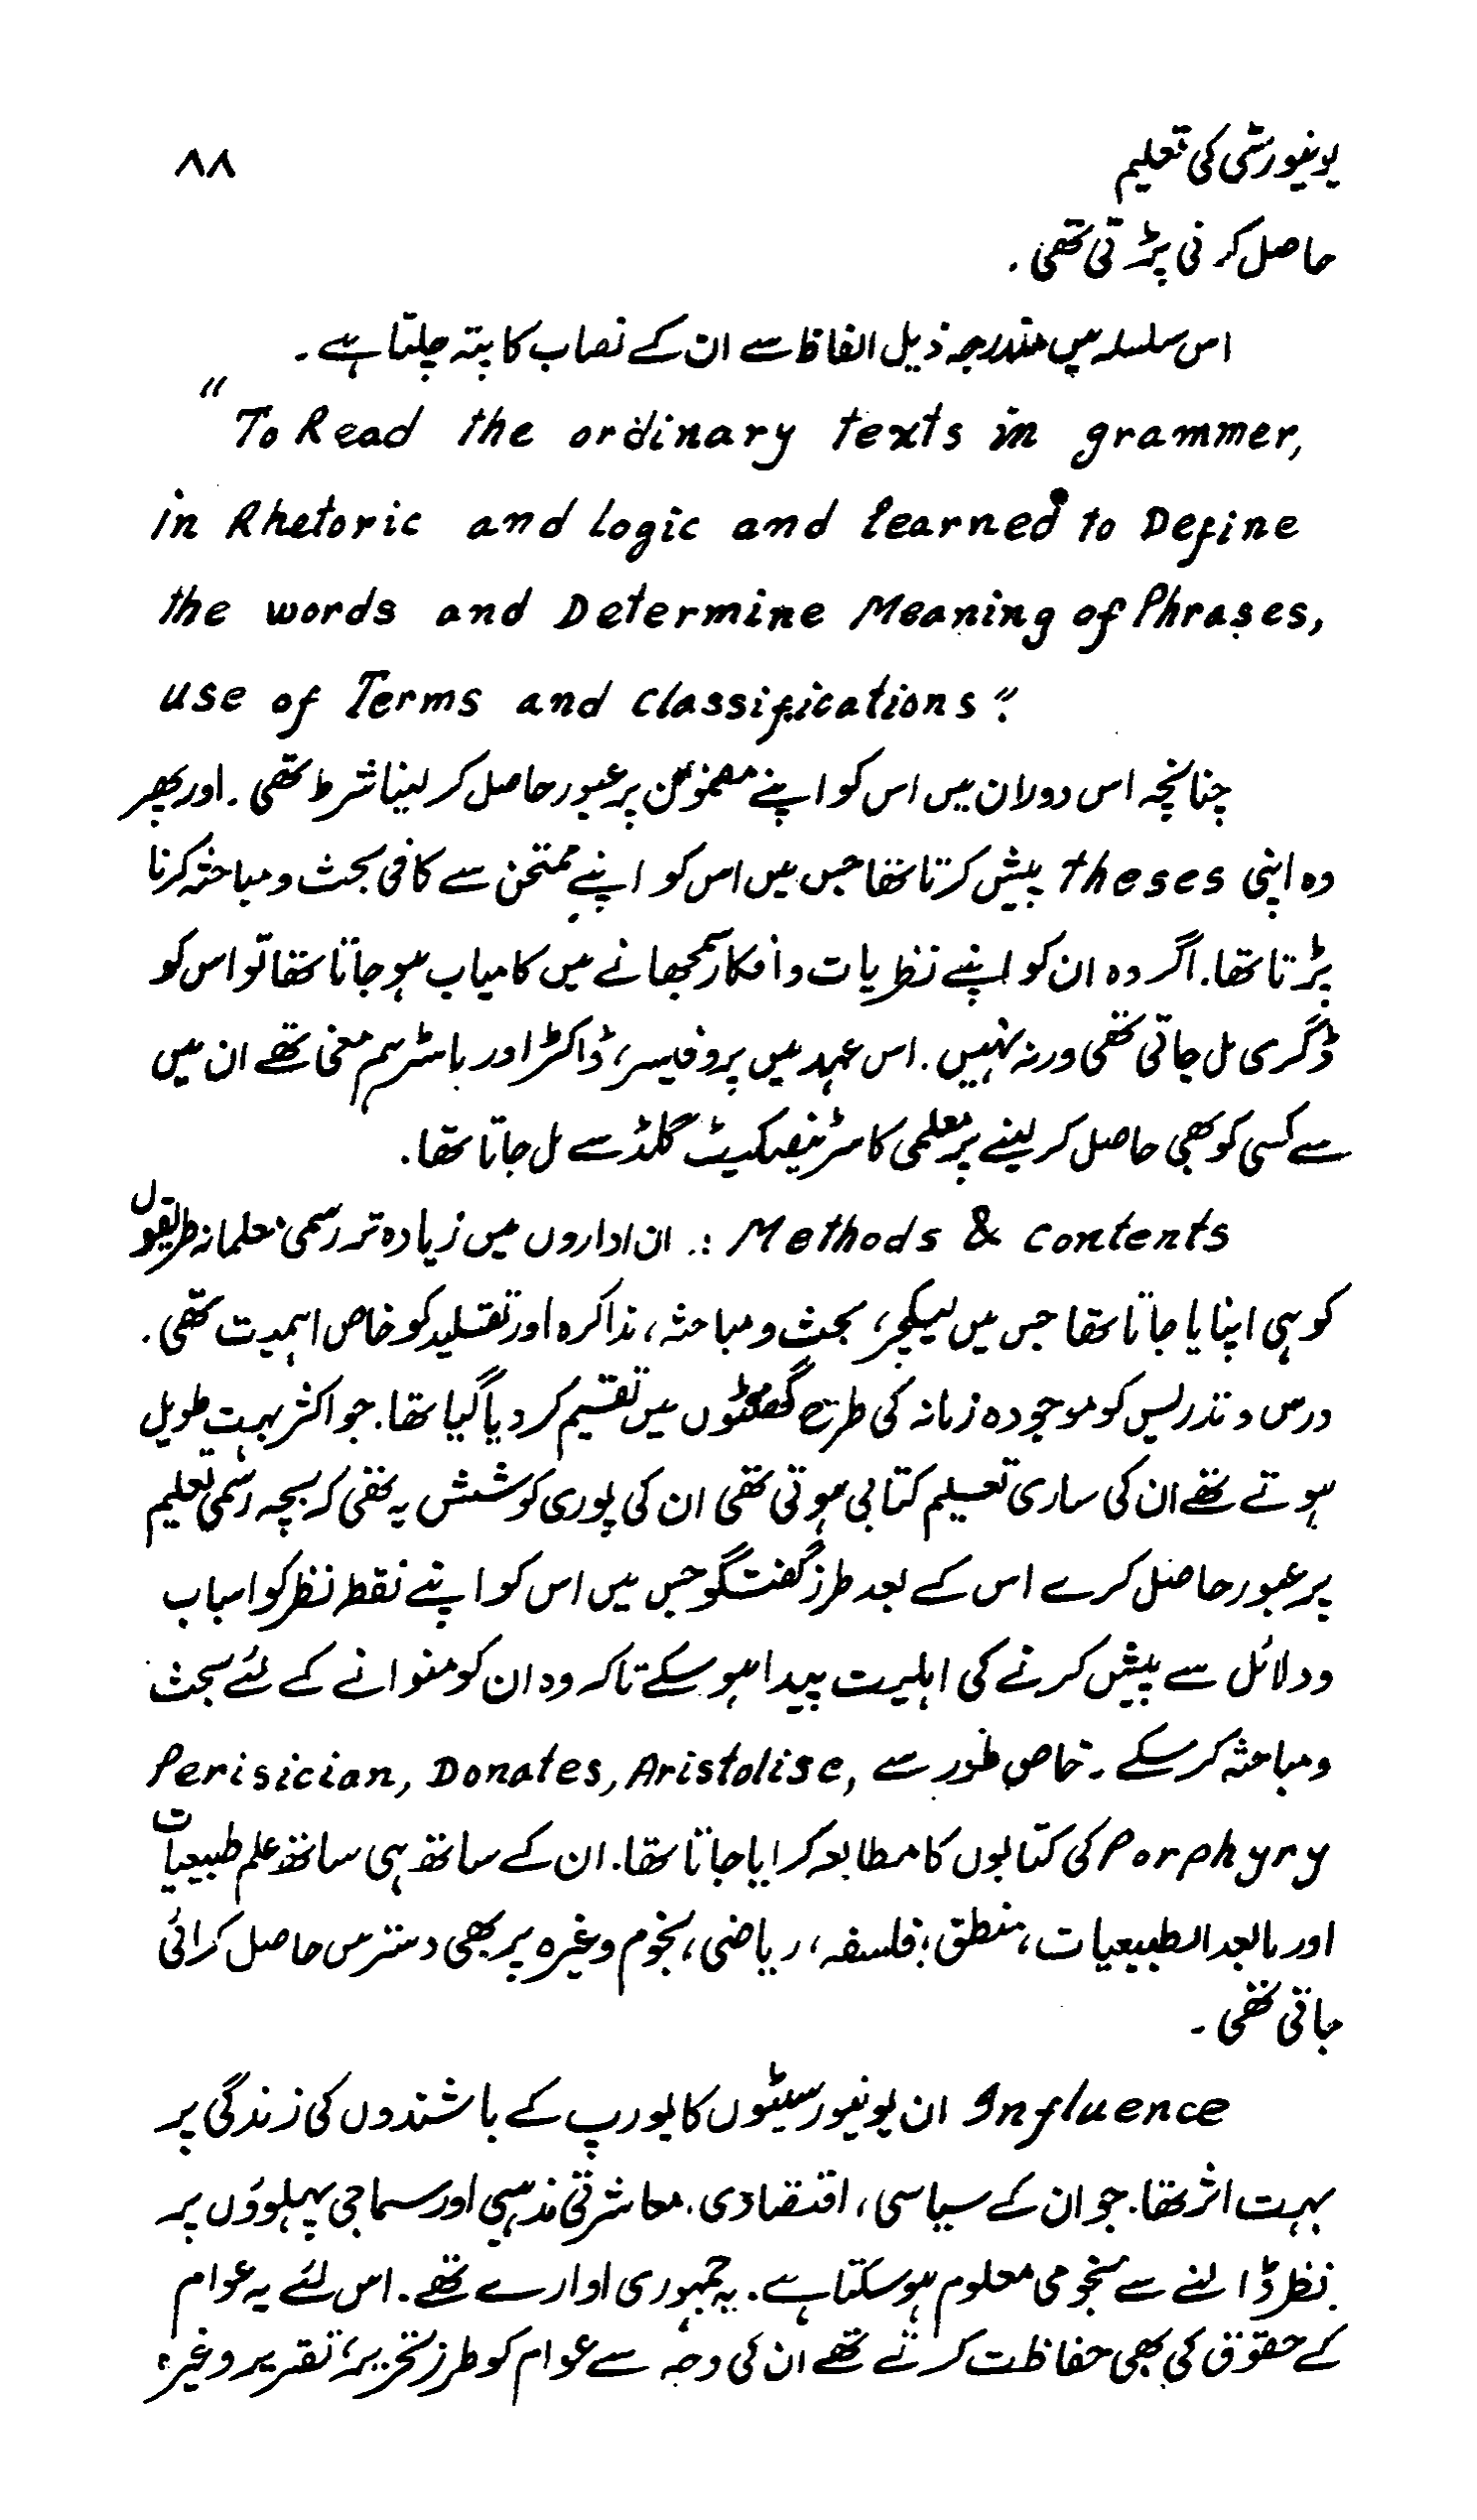 یونیورسٹی کی تعلیم ۸۸
حاصل کرنی پڑتی تھی.
اس سلسلہ میں مندرجہ ذیل الفاظ سے ان کے نصاب کا پتہ چلتا ہے۔
"To Read the ordinary texts in grammer,
in Rhetoric and Logic and learned to Define
the words and Determine Meaning of Phrases,
use of Terms and classifications".
چنانچہ اس دوران میں اس کو اپنے مضمون پر عبور حاصل کر لینا شرط تھی. اور پھر
وہ اپنی theses پیش کرتا تھا جس میں اس کو اپنے ممتحن سے کافی بحث و مباحثہ کرنا
پڑتا تھا. اگر وہ ان کو اپنے نظریات و افکار سمجھانے میں کامیاب ہو جاتا تھا تو اس کو
ڈگری مل جاتی تھی ورنہ نہیں. اس عہد میں پروفیسر، ڈاکٹر اور ماسٹر ہم معنی تھے ان میں
سے کسی کو بھی حاصل کر لینے پر معلمی کا سرٹیفیکیٹ گلڈ سے مل جاتا تھا.
Methods & contents :. ان اداروں میں زیادہ تر رسمی معلمانہ طریقوں
کو ہی اپنایا جاتا تھا جس میں لیکچر، بحث و مباحثہ، مذاکرہ اور تقلید کو خاص اہمیت تھی.
درس و تدریس کو موجودہ زمانہ کی طرح گھنٹوں میں تقسیم کر دیا گیا تھا. جو اکثر بہت طویل
ہوتے تھے ان کی ساری تعلیم کتابی ہوتی تھی ان کی پوری کوشش یہ تھی کہ بچہ رسمی تعلیم
پر عبور حاصل کرے اس کے بعد طرز گفتگو جس میں اس کو اپنے نقط نظر کو اسباب
و دلائل سے پیش کرنے کی اہلیت پیدا ہو سکے تاکہ وہ ان کو منوانے کے لئے بحث
و مباحثہ کر سکے۔ خاص طور سے Perisician, Donates, Aristolise,
Porphyry کی کتابوں کا مطالعہ کرایا جاتا تھا. ان کے ساتھ ہی ساتھ علم طبیعیات
اور مابعد الطبیعیات، منطق، فلسفہ، ریاضی، نجوم وغیرہ پر بھی دسترس حاصل کرائی
جاتی تھی۔
Influence ان یونیورسیٹوں کا یورپ کے باشندوں کی زندگی پر
بہت اثر تھا. جو ان کے سیاسی، اقتصادی، معاشرتی مذہبی اور سماجی پہلوؤں پر
نظر ڈالنے سے بخوبی معلوم ہو سکتا ہے. یہ جمہوری ادارے تھے. اس لئے یہ عوام
کے حقوق کی بھی حفاظت کرتے تھے ان کی وجہ سے عوام کو طرز تحریر، تقریر وغیرہ